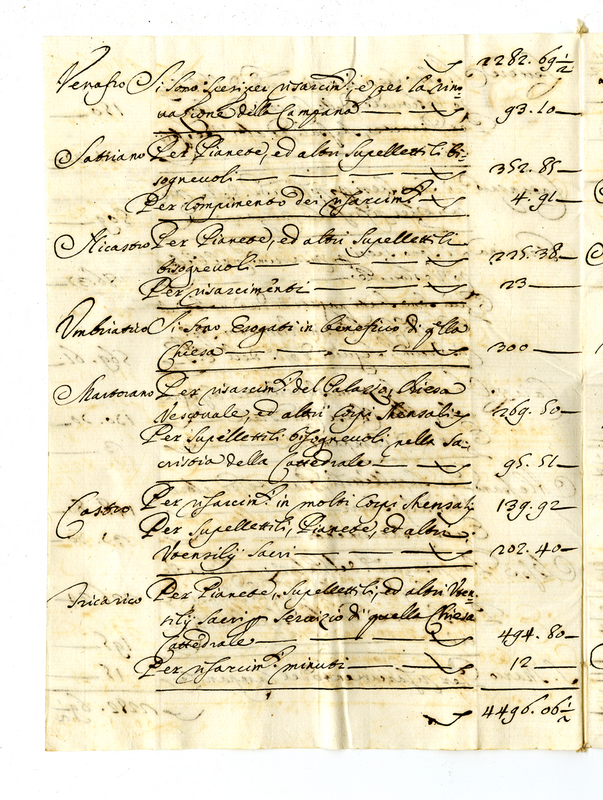 2282. 69 1/2
Venafro Si sono spesi per risarcim.ti, e per la rino-
vazione della Campana 93. 10
Satriano Per Pianete, ed altri Supellettili bi-
sognevoli 352. 85
Per compimento dei risarcim.ti 4. 91
Nicastro Per Pianete, ed altri Supellettili
bisognevoli 225. 38
Per risarcimenti 23
Umbriatico Si sono Erogati in beneficio di q.lla
Chiesa 300
Martorano Per risarcim.ti del Palazzo, Chiesa
Vescovale, ed altri Corpi Mensali 269. 50
Per Supellettili bisognevoli nella Sa-
cristia della Cattedrale 95. 51
Castro Per risarcim.ti in molti Corpi Mensali 139. 92
Per Supellettili, Pianete, ed altri
Utensilij Sacri 202. 40
Tricarico Per Pianete, Supellettili, ed altri Uten-
silij Sacri p servizio di quella Chiesa
Cattedrale 494. 80
Per risarcim.ti minuti 12
4496. 06 1/2